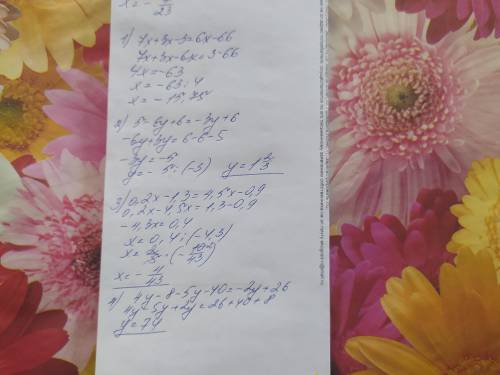 x = - 7/23
1) 7x+3x-3=6x-66
7x+3x-6x=3-66
4x=-63
x = -63:4
x = -15,75
2) 5-6y+6=-3y+6
-6y+3y=6-6-5
-3y=-5
y= -5:(-3) y=1 2/3
3) 0,2x-1,3=4,5x-0,9
0,2x-4,5x=1,3-0,9
-4,3x=0,4
x=0,4:(-4,3)
x=- 4/43
4) 4y-8-5y-40=-2y+26
4y-5y+2y=26+40+8
y=74